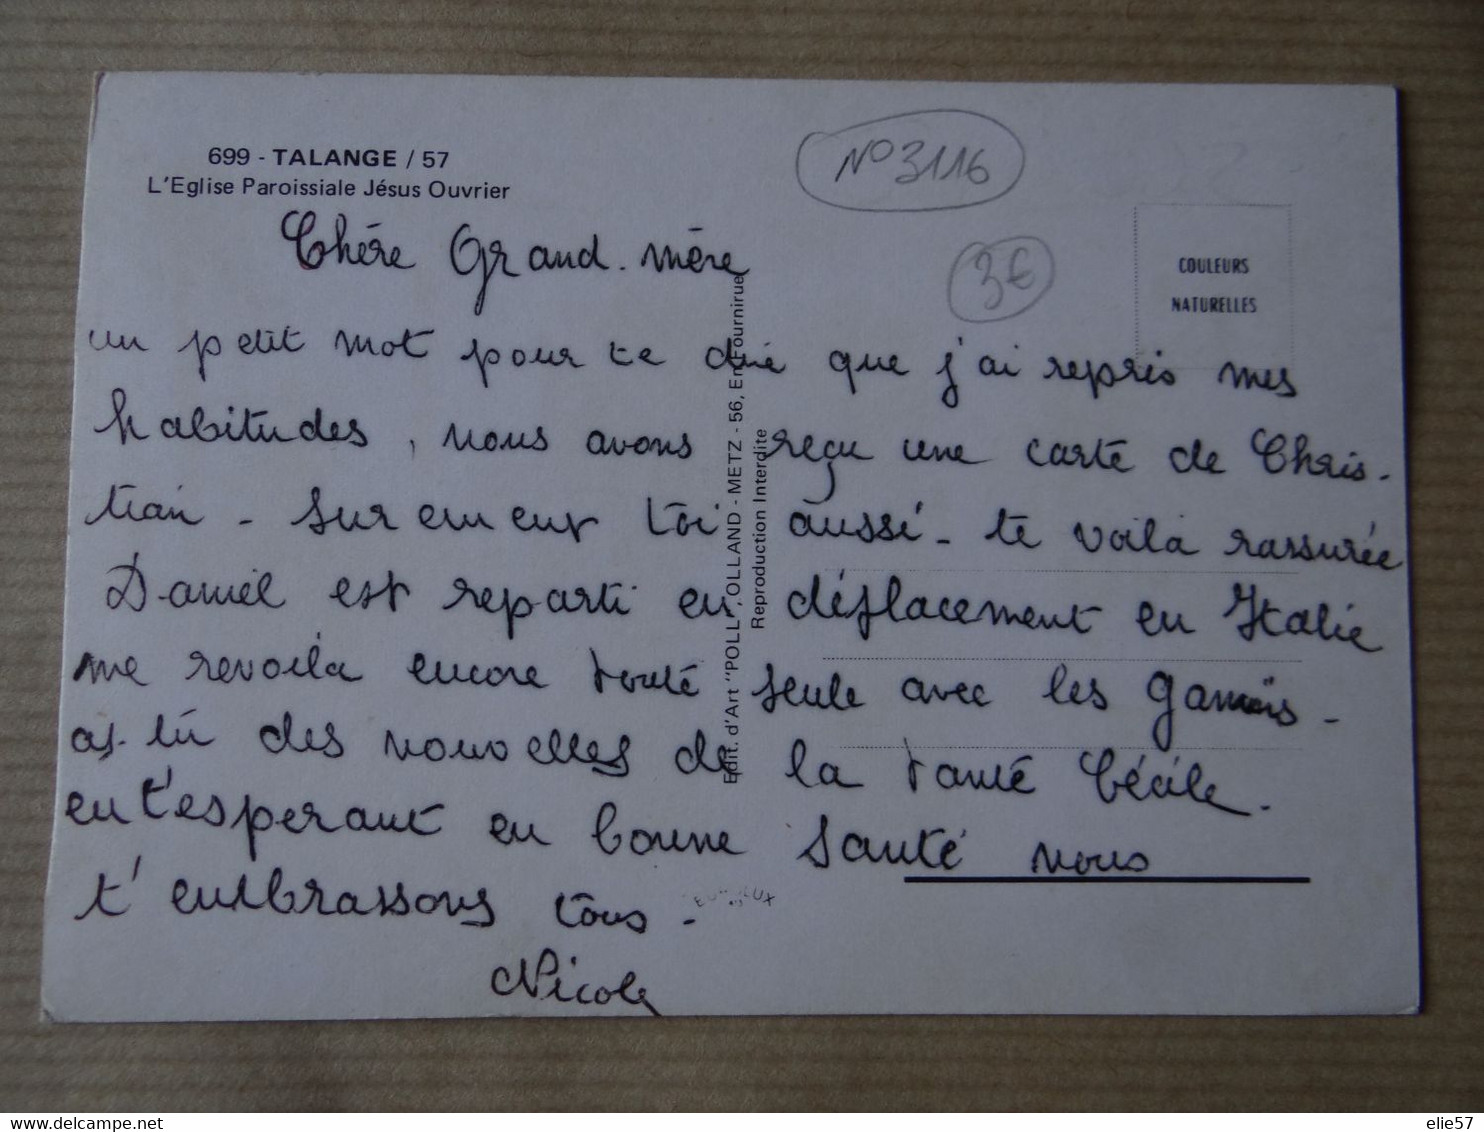 699 - TALANGE / 57
L'Eglise Paroissiale Jésus Ouvrier
N° 3116
3€
COULEURS
NATURELLES
Chére Grand. mère
un petit mot pour te dire que j'ai repris mes
habitudes, nous avons reçu une carte de Chris-
tian - surement toi aussi - te voila rassurée
Daniel est reparti en déplacement en Italie
me revoila encore toute seule avec les gamins -
as-tu des nouvelles de la tante Cécile.
en t'esperant en bonne santé nous
t'embrassons tous -
Nicole
Edit. d'Art "POLL", OLLAND - METZ - 56, En Fournirue
Reproduction Interdite
www.delcampe.net
elie57